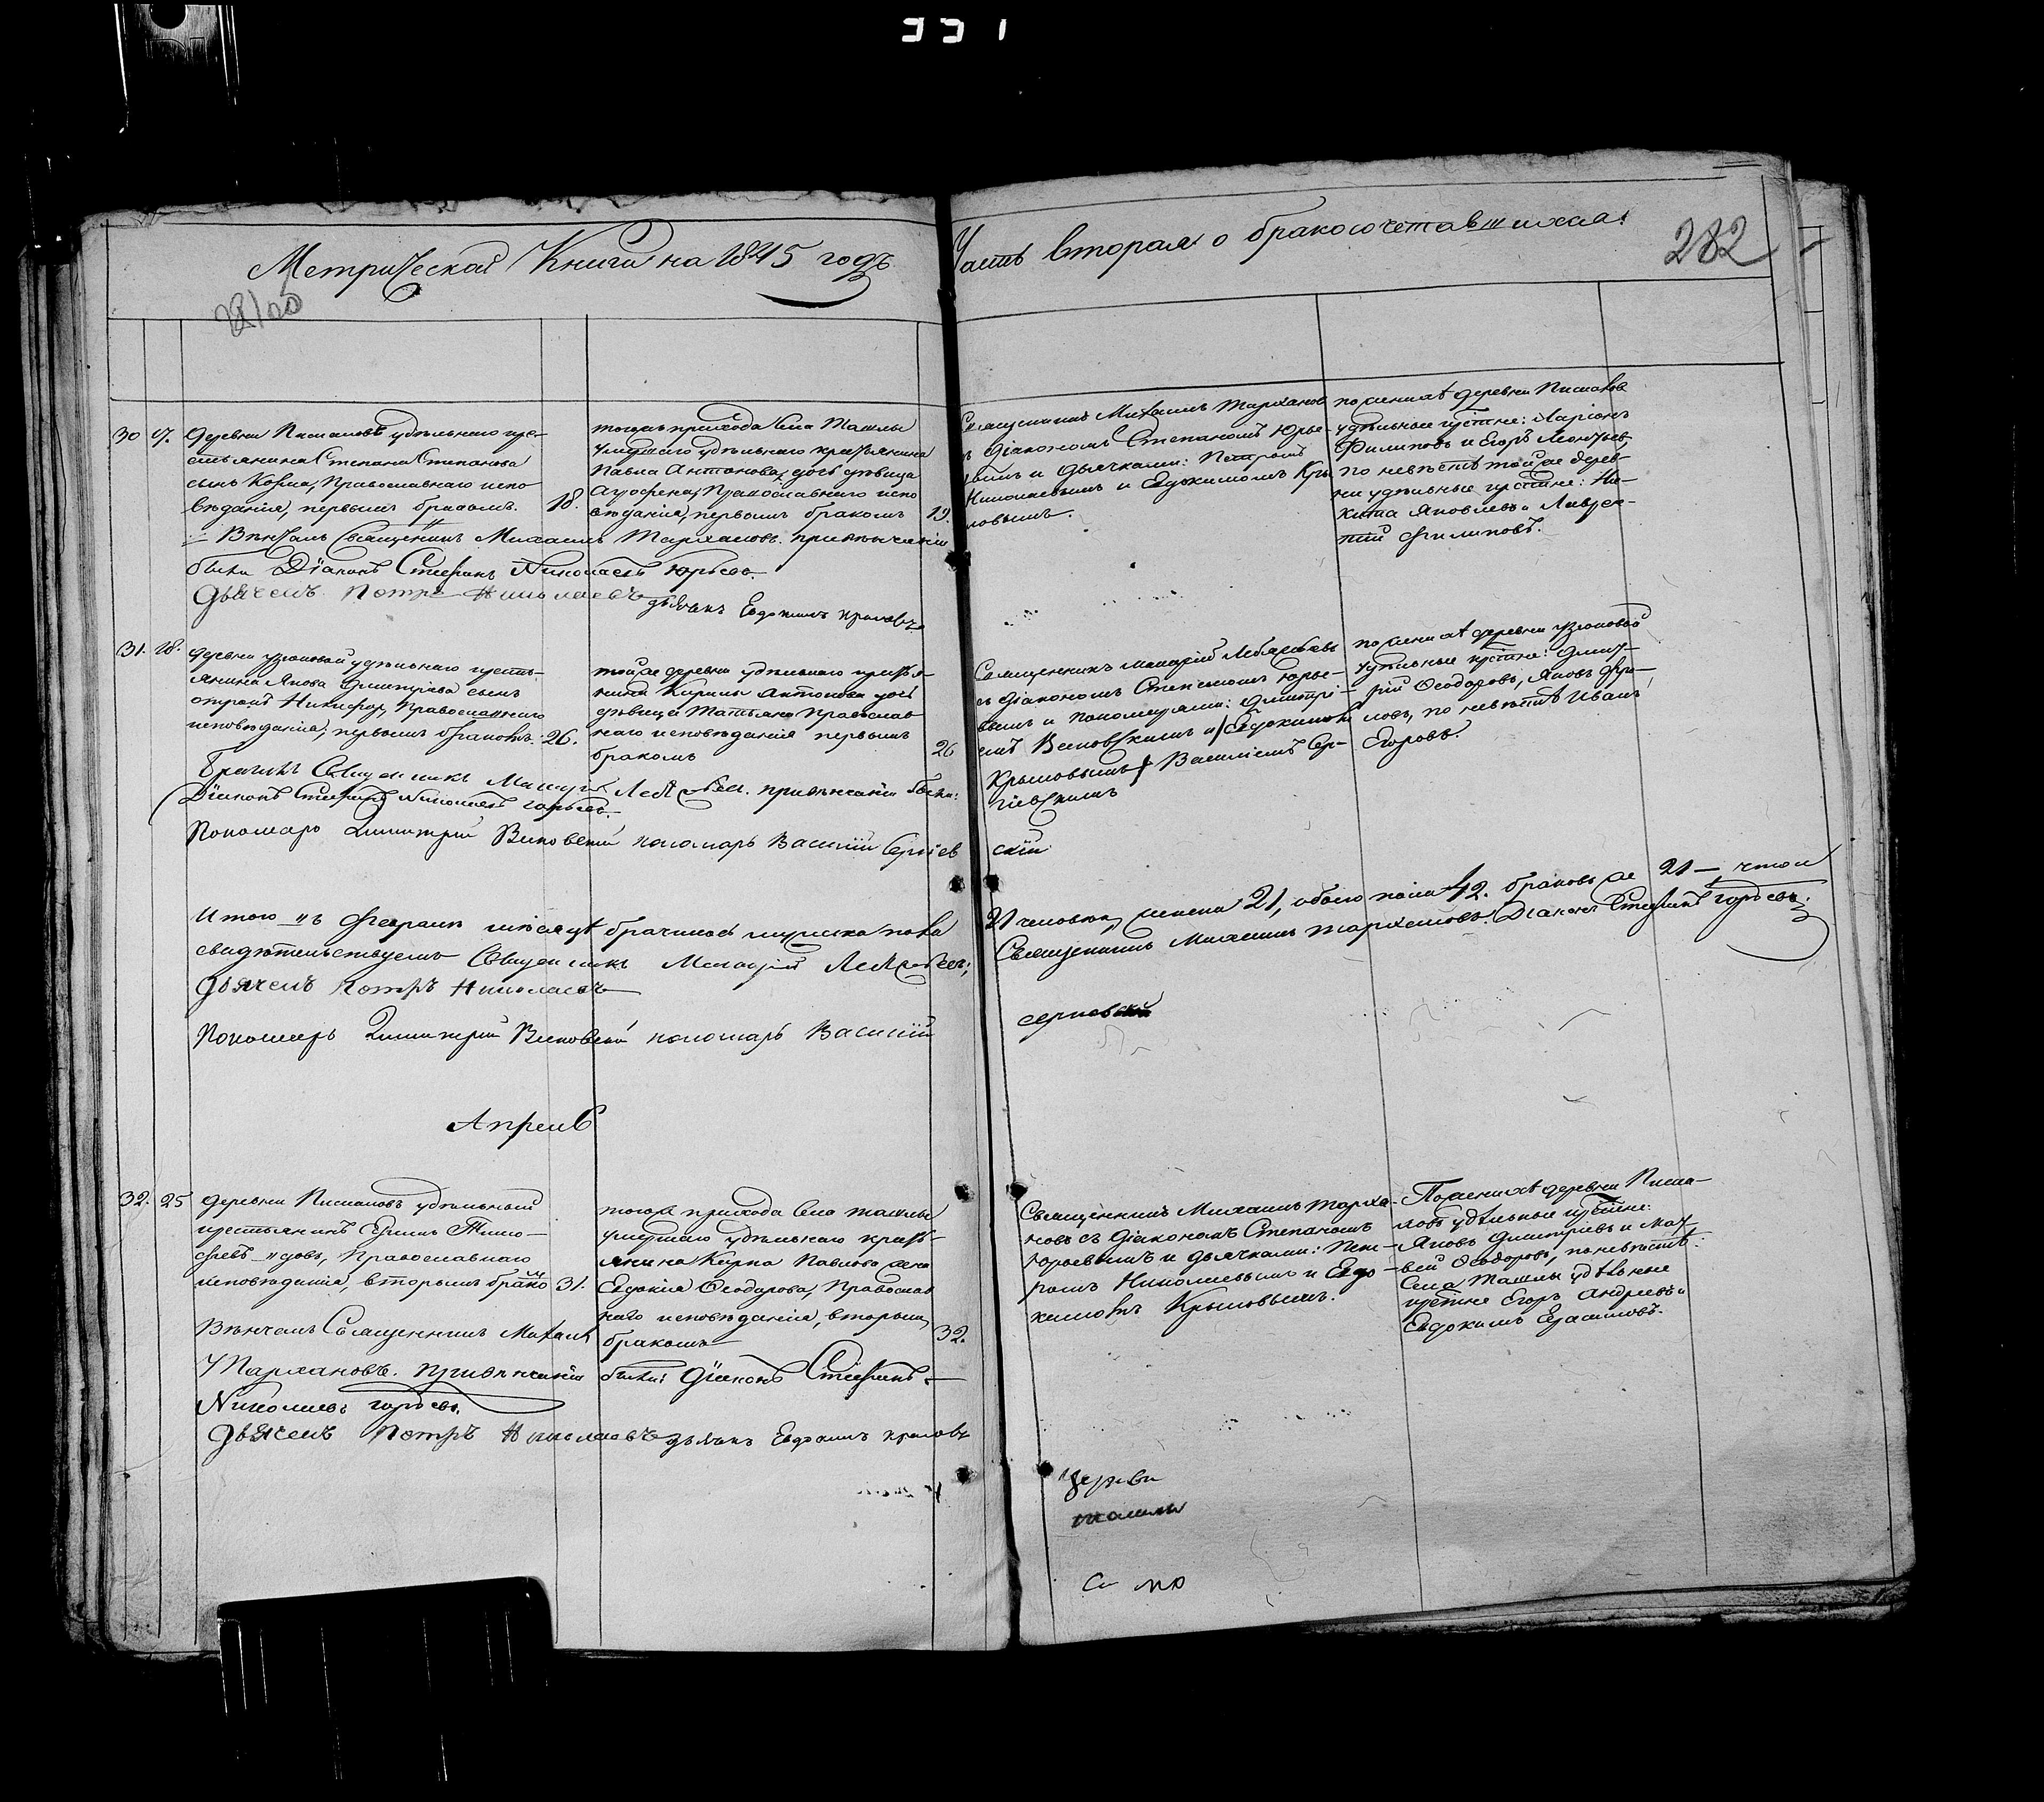 331
Метрической Книги на 1845 годъ
Часть вторая о бракосочетавшихся.
282
30
Деревни Писмаловъ удѣльнаго кре-
стьянина Степана Степанова
сынъ Козма, Православнаго испо
вѣданія, первымъ бракомъ.
18.
тогожъ прихода села Ташлы
умершаго удѣльнаго крестьянина
Павла Антонова дочь дѣвица
Агрофена, Православнаго испо
вѣданія, первымъ бракомъ
19.
Священникъ Михаилъ Тархановъ
съ діакономъ Степаномъ Юрье-
вымъ и дьячками: Петромъ
Николаевымъ и Евдокимомъ Кры
ловымъ.
по женихѣ деревни
удѣльные крестьяне: Ларіонъ
Филиповъ и Егоръ Леонтьев,
по невѣстѣ той же дерев-
ни удѣльные крестьяне: Ни-
кита Яковлевъ и Лаврен-
тій Филиповъ.
Вѣнчалъ Священникъ Михаилъ Тархановъ. при вѣнчаніи
были Діаконъ Стефанъ Николаевъ Юрьевъ.
Дьячекъ Петръ Николаевъ дьячекъ Евдокимъ Крыловъ
31. 18.
деревни удѣльнаго кресть-
янина Якова Дмитріева сынъ
Никифор, Православнаго
исповѣданія, первымъ бракомъ.
26.
той же деревни удѣльнаго крестья-
нина Кирилы Антонова дочь
дѣвица Татьяна Православ
наго исповѣданія первымъ
бракомъ
26
Священникъ
съ діакономъ Степаномъ Юрье-
вымъ и пономарями: Дмитрі-
емъ и Евдокимомъ
Крыловымъ Василіемъ Сер-
гіевскимъ
по женихѣ деревни
удѣльные крестьяне: Дмит-
рій Ѳеодоровъ, Яковъ
ловъ, по невѣстѣ Иванъ
Егоровъ.
Бракъ Священникъ при вѣнчаніи были:
Діаконъ Стефанъ Николаевъ Юрьевъ.
Пономарь Димитрій пономарь Василій Сергіев
скій
Итого въ Февралѣ мѣсяцѣ брачилось мужска пола
21 человѣкъ, женска 21, обоего пола 42. браковъ же 21 — что и
свидѣтельствуемъ Священникъ
Священникъ Михаилъ Тархановъ. Діаконъ Стефанъ Юрьевъ.
Дьячекъ Петръ Николаевъ
Пономарь Димитрій пономарь Василій
Апрель
32. 25
деревни Писмаловъ удѣльный
крестьянинъ Ефимъ Тимо-
феевъ вдовъ, Православнаго
исповѣданія, вторымъ браком
31.
тогоже прихода села Ташлы
умершаго удѣльнаго кресть-
янина Карпа Павлова жена
Евдокія Ѳеодорова, Православ
наго исповѣданія, вторым
бракомъ
32.
Священникъ Михаилъ Тарха-
новъ съ діакономъ Степаномъ
Юрьевымъ и дьячками: Пет-
ромъ Николаевымъ и Евдо-
кимомъ Крыловымъ.
По женихѣ деревни Писма-
ловъ удѣльные крестьяне:
Яковъ Дмитріевъ и Мат-
вей Ѳеодоровъ, по невѣстѣ:
Села Ташлы удѣльные
крестьяне Егоръ Андреевъ и
Евдокимъ Герасимовъ.
Вѣнчалъ Священникъ Михаилъ
Тархановъ. при вѣнчаніи были: Діаконъ Стефанъ
Николаевъ Юрьевъ.
Дьячекъ Петръ Николаевъ дьячекъ Евдокимъ Крыловъ
Церкви